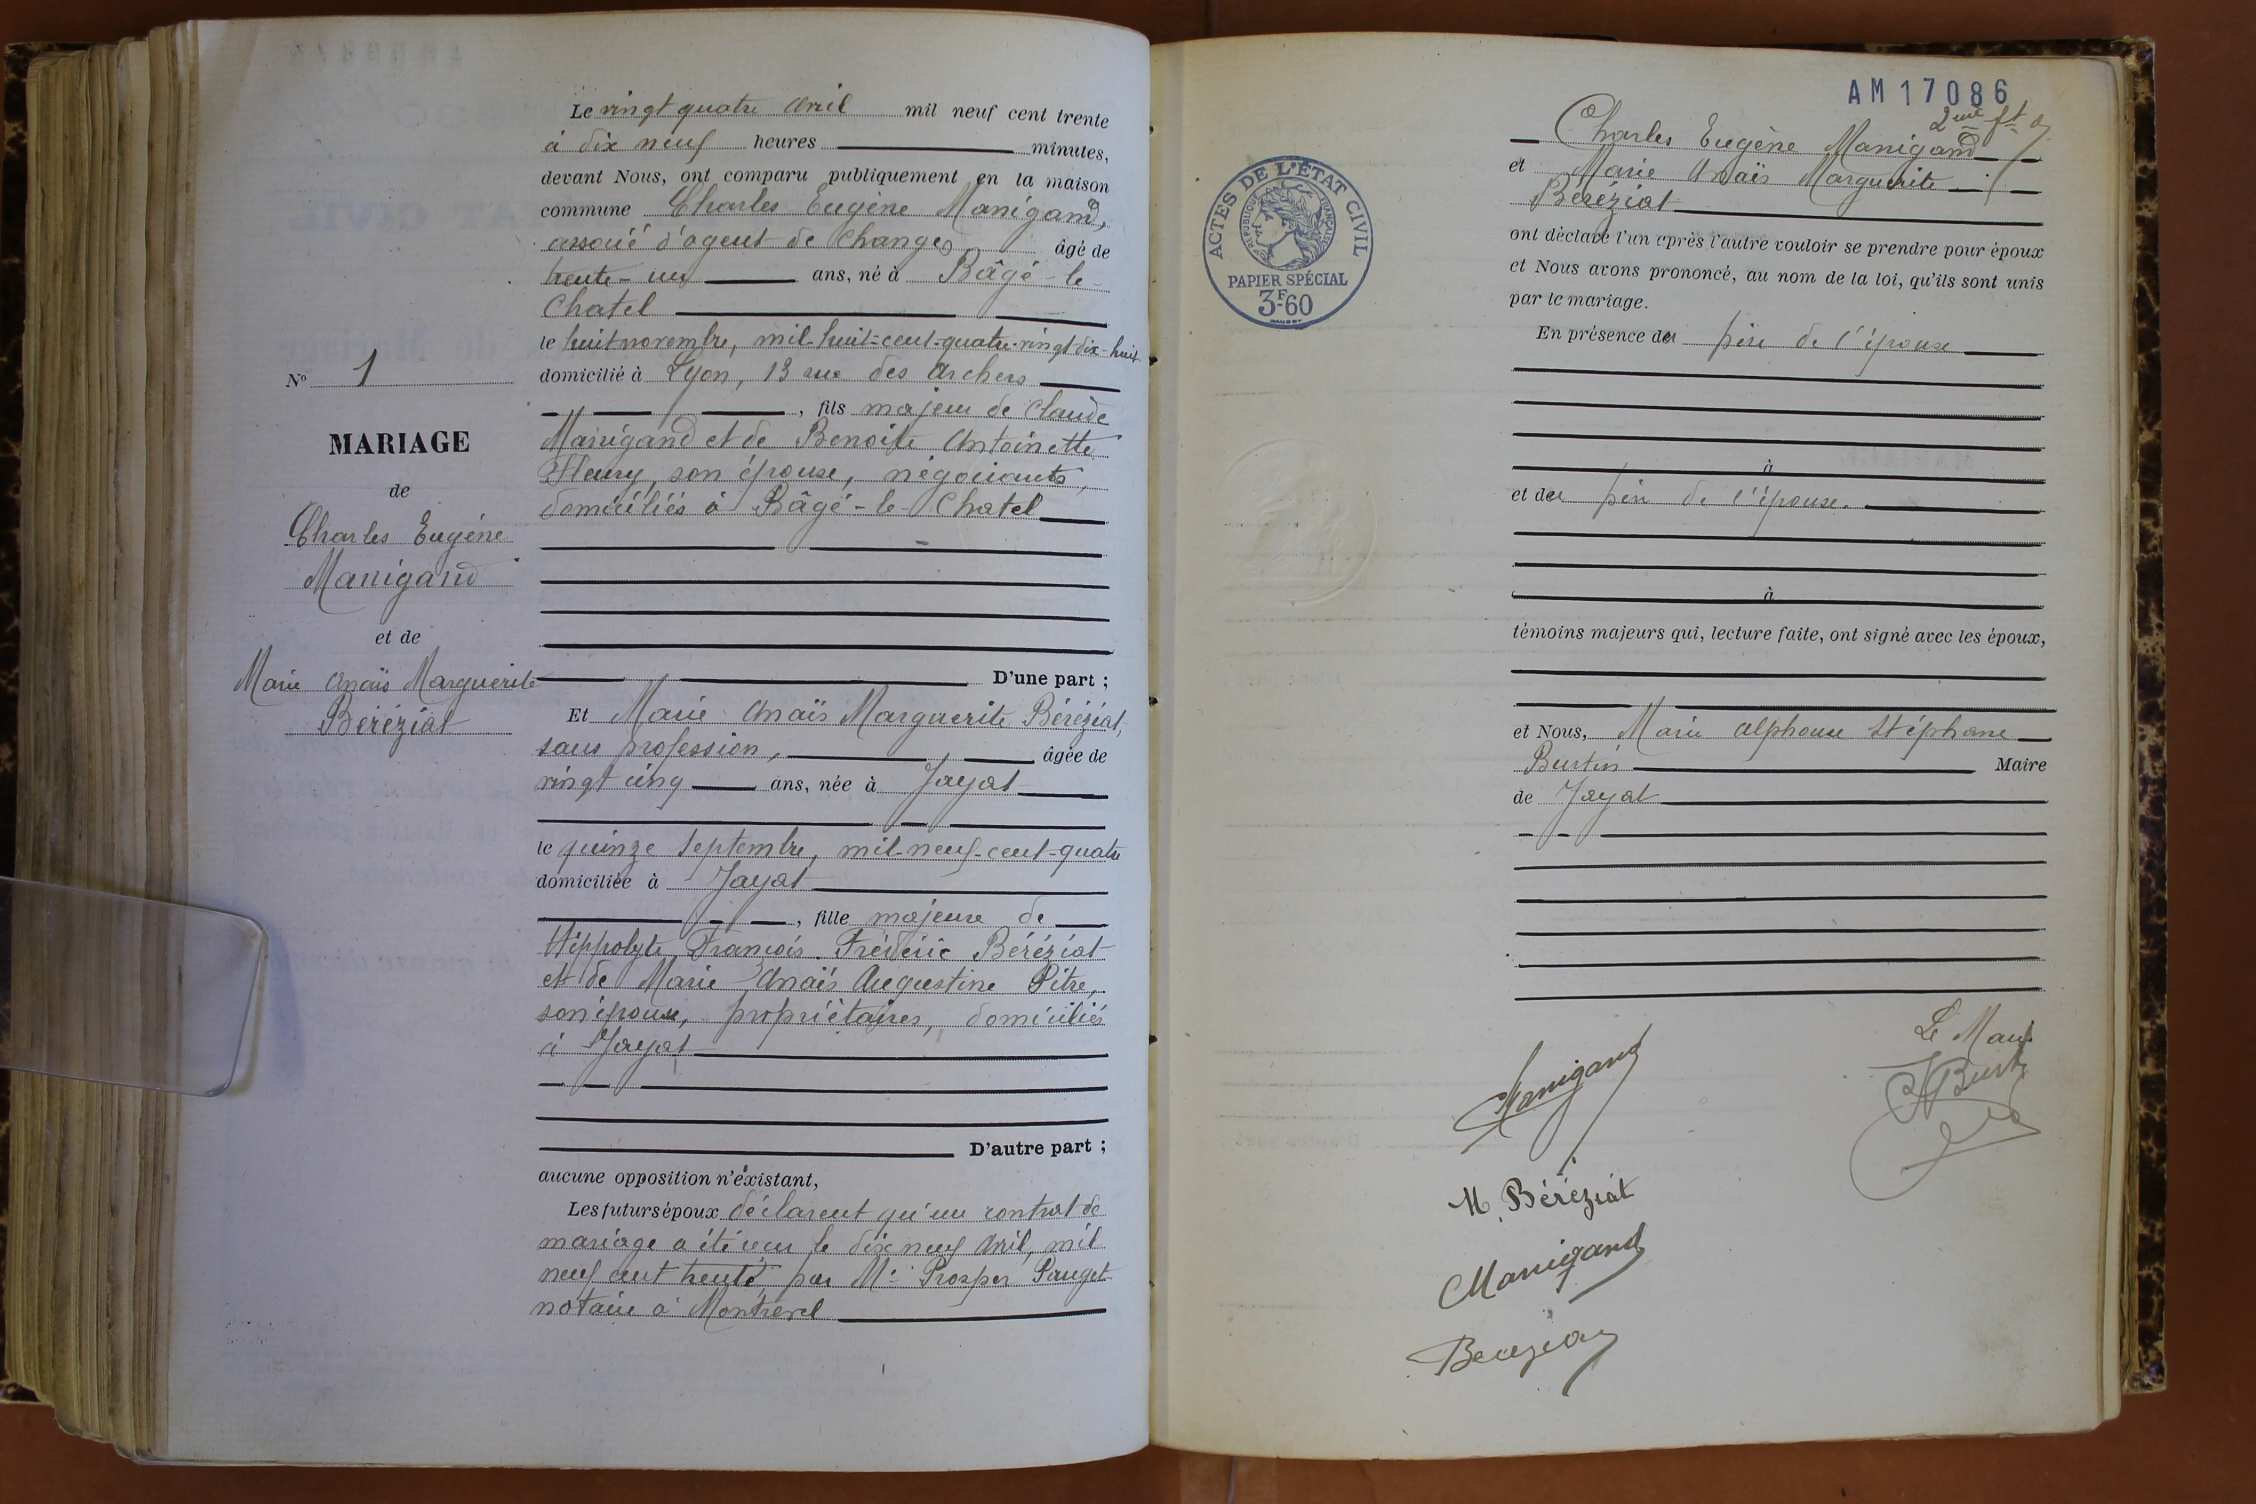 N° 1
MARIAGE
de
Charles Eugène
Manigand
et de
Marie Anaïs Marguerite
Béréziat
Le vingt quatre Avril mil neuf cent trente
à dix neuf heures minutes,
devant Nous, ont comparu publiquement en la maison
commune Charles Eugène Manigand,
associé d'agent de change, âgé de
trente-un ans, né à Bâgé-le-
Chatel
le huit novembre, mil-huit-cent-quatre-vingt-dix-huit
domicilié à Lyon, 13 rue des Archers
, fils majeur de Claude
Manigand et de Benoite Antoinette
Fleury, son épouse, négociants,
domiciliés à Bâgé-le-Chatel
D'une part ;
Et Marie Anaïs Marguerite Béréziat,
sans profession, âgée de
vingt cinq ans, née à Jayat
le quinze Septembre, mil-neuf-cent-quatre
domiciliée à Jayat
, fille majeure de
Hippolyte François Frédéric Béréziat
et de Marie Anaïs Augustine Pitre,
son épouse, propriétaires, domiciliés
à Jayat
D'autre part ;
aucune opposition n'existant,
Les futurs époux déclarent qu'un contrat de
mariage a été reçu le dix neuf Avril, mil
neuf cent trente, par Me Prosper Pauget
notaire à Montrevel
AM17086
2me ft
ACTES DE L'ÉTAT CIVIL
RÉPUBLIQUE FRANÇAISE
PAPIER SPÉCIAL
3F60
Charles Eugène Manigand
et Marie Anaïs Marguerite
Béréziat
ont déclaré l'un après l'autre vouloir se prendre pour époux
et Nous avons prononcé, au nom de la loi, qu'ils sont unis
par le mariage.
En présence du père de l'épouse
à
et du père de l'épouse.
à
témoins majeurs qui, lecture faite, ont signé avec les époux,
et Nous, Marie Alphonse Stéphane
Burtin Maire
de Jayat
Le Maire
Manigand
M. Béréziat
Manigand